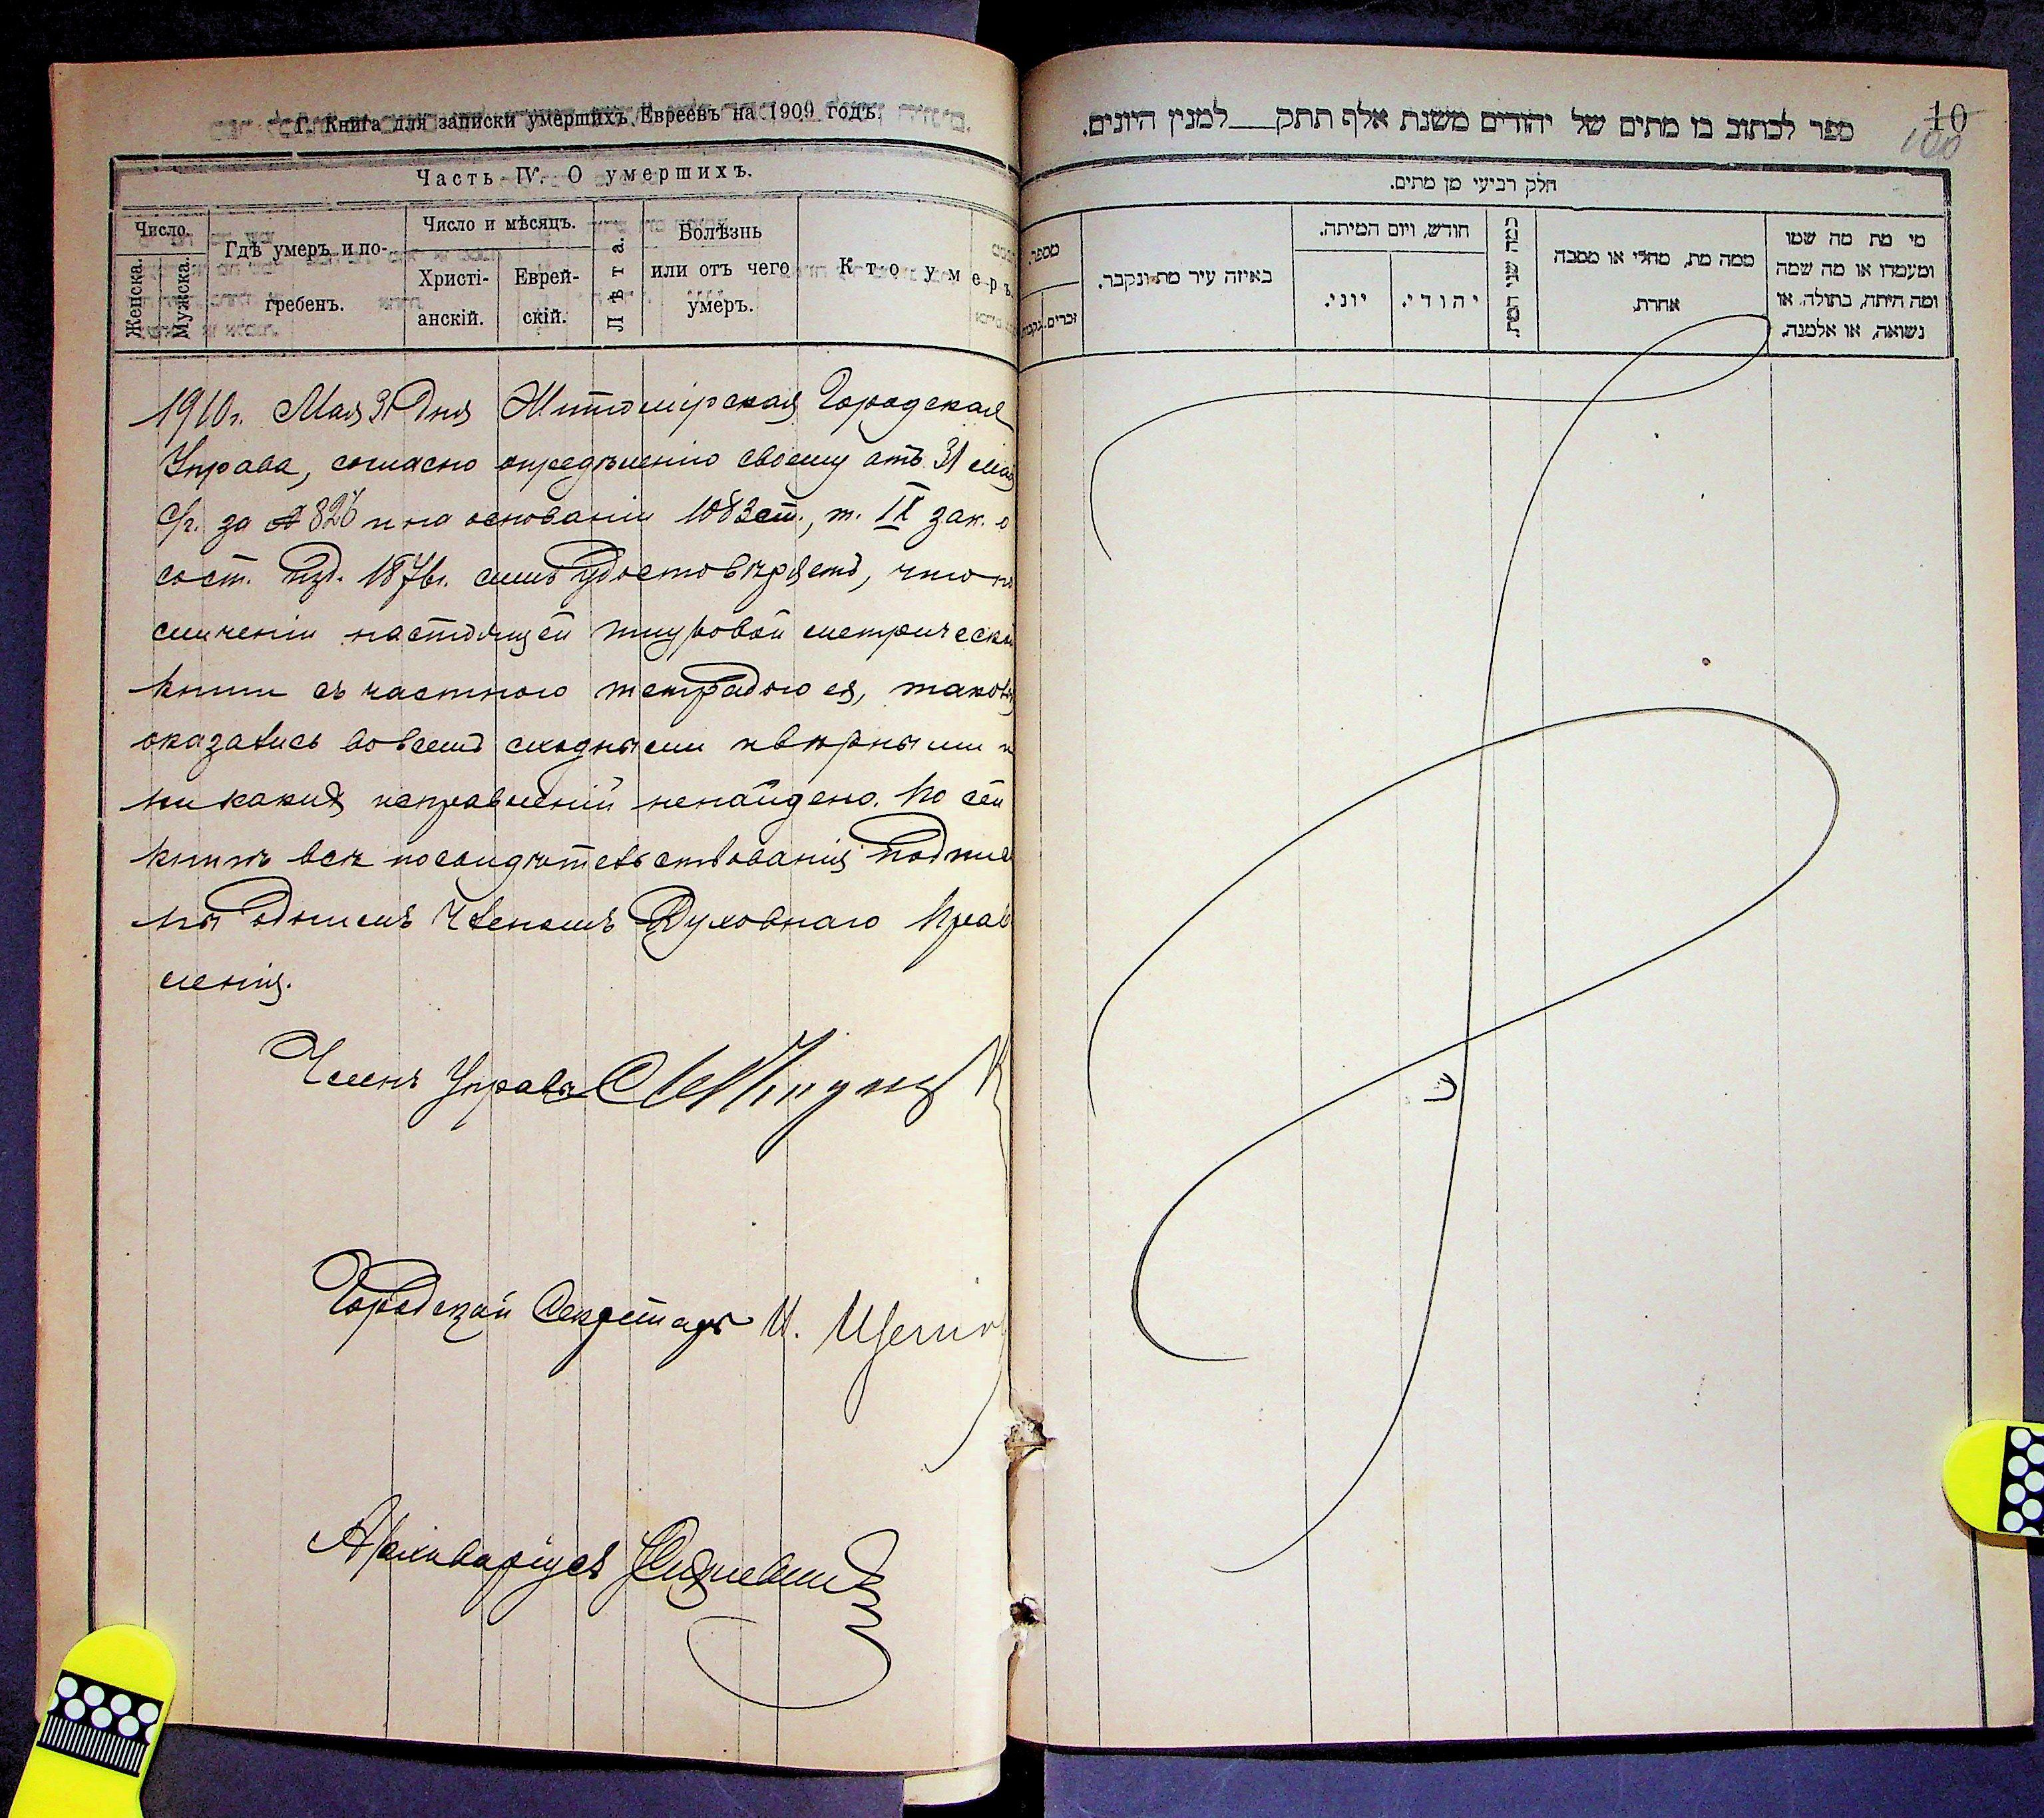 Г. Книга для записки умершихъ Евреевъ на 1909 годъ.
Часть IV. О умершихъ.
Число.
Женска.
Мужска.
Гдѣ умеръ и по-
гребенъ.
Число и мѣсяцъ.
Христі-
анскій.
Еврей-
скій.
Лѣта.
Болѣзнь
или отъ чего
умеръ.
Кто умеръ.
1910г. Мая 31 дня Житомірская Городская
Управа, согласно опредѣленію своему отъ 31 мая
с/г. за № 826 и на основаніи 1083 ст., т. IX зак. о
сост. изд. 1876г. симъ удостовѣряетъ, что по
сличеніи настоящей шнуровой метрической
книги съ частною тетрадью ея, таковыя
оказались во всемъ сходными и вѣрными и
никакихъ исправленій не найдено. По сей
книгѣ всѣ посвидѣтельствованія подписа
ны однимъ Членомъ Духовнаго Прав
ленія.
Членъ Управы
Городской Секретарь И.
Архиваріусъ
ספר לכתוב בו מתים של יהודים משנת אלף תתק למנין היונים.
10
100
חלק רביעי מן מתים.
מספר.
זכרים.
נקבות
באיזה עיר מת ונקבר.
חודש, ויום המיתה.
יוני.
יהודי.
כמה שני המת.
ממה מת, מחלי או מסבה
אחרת.
מי מת מה שמו
ומעמדו או מה שמה
ומה היתה, בתולה, או
נשואה, או אלמנה.